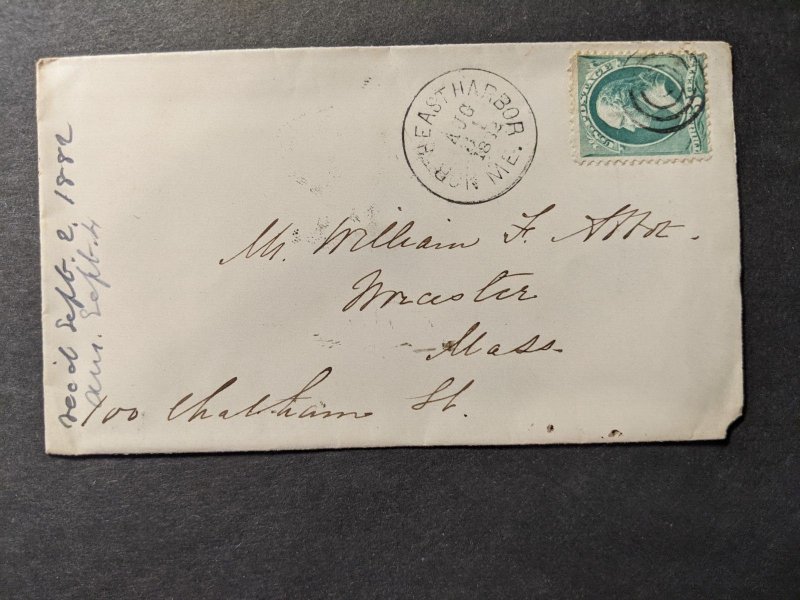 NORTHEAST HARBOR
AUG
31
1882
ME.
Mr. William F. Abbot.
Worcester
Mass.
100 Chatham St.
rec'd Sept. 2, 1882
ans. Sept. 4